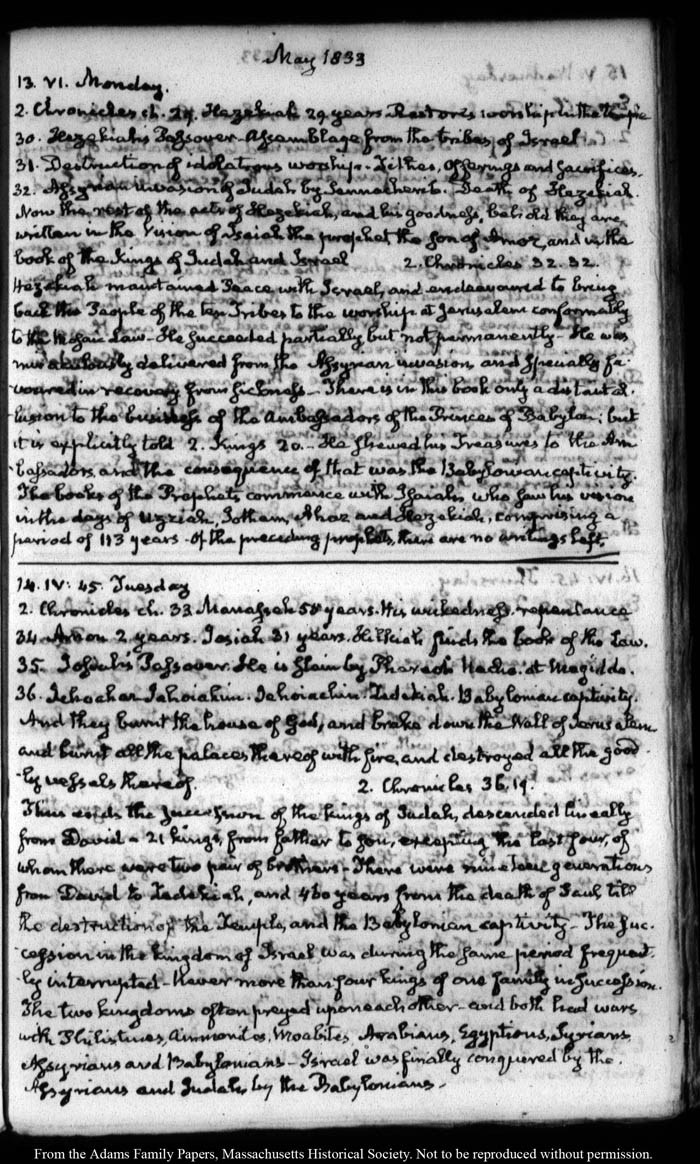 May 1833
13. VI. Monday.
2. Chronicles ch. 29. Hezekiah 29 years Restores worship in the temple
30. Hezekiah's Passover. Assemblage from the tribes of Israel
31. Destruction of idolatrous worship. Tithes, Offerings and Sacrifices.
32. Assyrian invasion of Judah by Sennacherib. Death of Hezekiah.
Now the rest of the acts of Hezekiah, and his goodness, behold they are
written in the vision of Isaiah the prophet the son of Amoz, and in the
book of the Kings of Judah and Israel 2. Chronicles 32. 32.
Hezekiah maintained Peace with Israel, and endeavoured to bring
back the People of the ten Tribes to the worship at Jerusalem conformally
to the Mosaic Law – He succeeded partially but not permanently – He was
miraculously delivered from the Assyrian invasion and specially fa
voured in recovery from sickness – There is in this book only a distant al
lusion to the business of the Ambassadors of the Princes of Babylon; but
it is explicitly told 2. Kings 20. – He shewed his Treasures to the Am
bassadors, and the consequence of that was the Babylonian captivity.
The books of the Prophets commence with Isaiah, who saw his vision
in the days of Uzziah, Jotham, Ahaz and Hezekiah, comprising a
period of 113 years – Of the preceding prophets, there are no writings left.
14. IV: 45. Tuesday
2. Chronicles ch. 33. Manasseh 55 years. His wickedness. repentance
34. Amon 2 years. Josiah 31 years. Hilkiah finds the book of the Law.
35. Josiah's Passover. He is slain by Pharaoh Necho. at Megiddo.
36. Jehoahaz Jehoiakim. Jehoiachin. Zedekiah. Babylonian captivity.
And they burnt the house of God, and brake down the Wall of Jerusalem
and burnt all the palaces thereof with fire, and destroyed all the good
ly vessels thereof. 2. Chronicles 36. 19.
Thus ends the succession of the kings of Judah, descended lineally
from David – 21 kings, from father to son, excepting the last four, of
whom there were two pair of brothers – There were nineteen generations
from David to Zedekiah, and 460 years from the death of Saul till
the destruction of the Temple, and the Babylonian captivity – The suc
cession in the kingdom of Israel was during the same period frequent
ly interrupted – Never more than four kings of one family in succession.
The two kingdoms often preyed upon each other – and both had wars
with Philistines, Ammonites, Moabites, Arabians, Egyptians, Syrians
Assyrians and Babylonians – Israel was finally conquered by the
Assyrians and Judah, by the Babylonians –
From the Adams Family Papers, Massachusetts Historical Society. Not to be reproduced without permission.